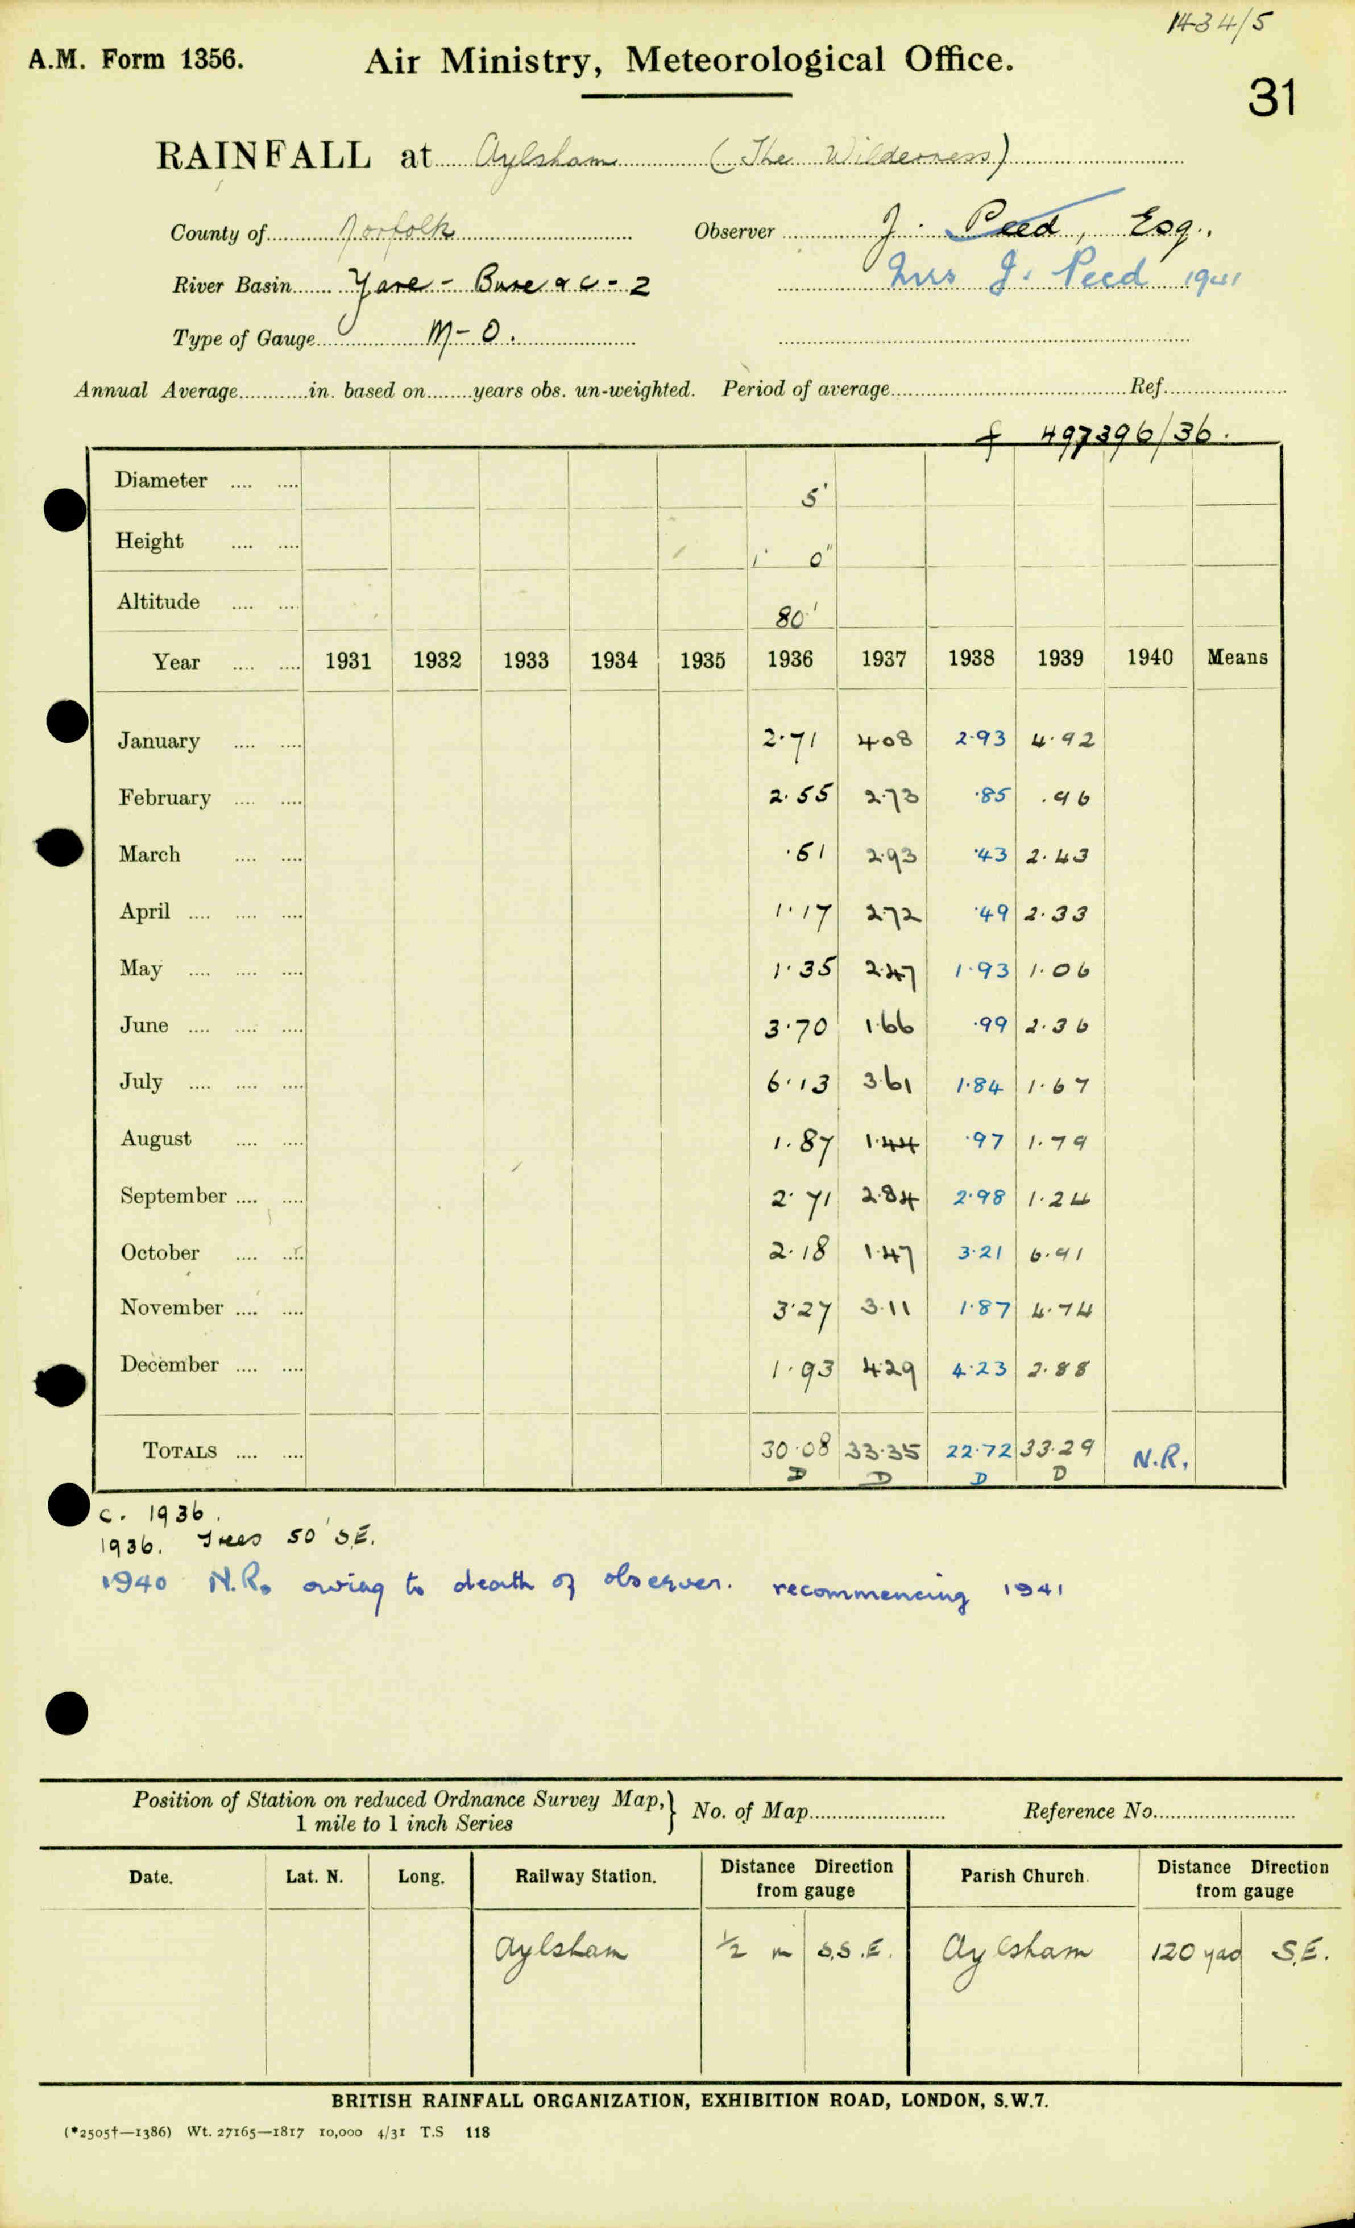 1434/5
A.M. Form 1356. Air Ministry, Meteorological Office.
31
RAINFALL at Aylsham (The Wilderness)
County of Norfolk Observer J. Peed, Esq.
River Basin Yare - Bure &c - 2 Mrs J. Peed 1941
Type of Gauge M-O.
Annual Average in. based on years obs. un-weighted. Period of average Ref.
f 497396/36.
Diameter .... .... 5"
Height .... .... 1' 0"
Altitude .... .... 80'
Year .... .... 1931 1932 1933 1934 1935 1936 1937 1938 1939 1940 Means
January .... .... 2.71 4.08 2.93 4.92
February .... .... 2.55 2.73 .85 .96
March .... .... .51 2.93 .43 2.43
April .... .... .... 1.17 2.72 .49 2.33
May .... .... .... 1.35 2.47 1.93 1.06
June .... .... .... 3.70 1.66 .99 2.36
July .... .... .... 6.13 3.61 1.84 1.67
August .... .... 1.87 1.44 .97 1.79
September .... .... 2.71 2.84 2.98 1.24
October .... .... 2.18 1.47 3.21 6.91
November .... .... 3.27 3.11 1.87 4.74
December .... .... 1.93 4.29 4.23 2.88
TOTALS .... .... 30.08 33.35 22.72 33.29 N.R.
D D D D
c. 1936.
1936. Trees 50' S.E.
1940 N.R. owing to death of observer. recommencing 1941
Position of Station on reduced Ordnance Survey Map, 1 mile to 1 inch Series } No. of Map Reference No.
Date. Lat. N. Long. Railway Station. Distance Direction from gauge Parish Church. Distance Direction from gauge
Aylsham ½ m S.S.E. Aylsham 120 yds S.E.
BRITISH RAINFALL ORGANIZATION, EXHIBITION ROAD, LONDON, S.W.7.
(*2505†—1386) Wt. 27165—1817 10,000 4/31 T.S 118